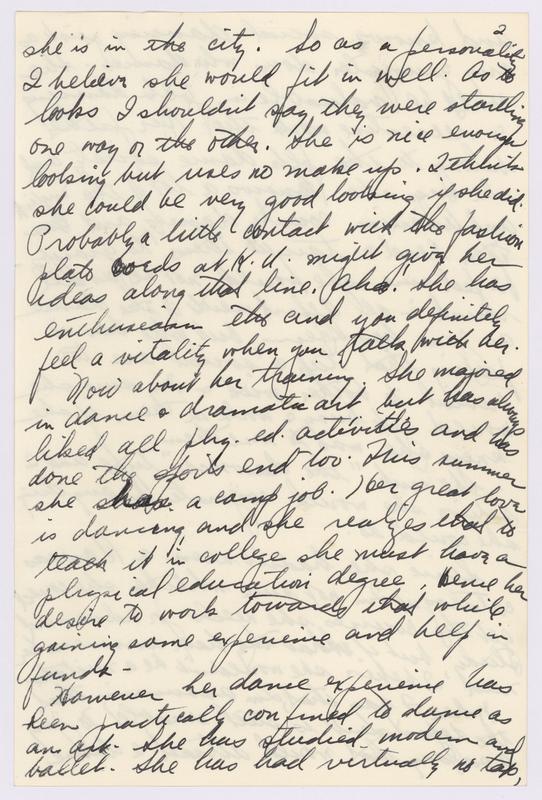 2
she is in the city. So as a personality
I believe she would fit in well. As to
looks I shouldn't say they were startling
one way or the other. She is nice enough
looking but uses no make up. I think
she could be very good looking if she did.
Probably a little contact with the fashion
plate coeds at K.U. might give her
ideas along that line. Aha. She has
enthusiasm etc and you definitely
feel a vitality when you talk with her.
Now about her training. She majored
in dance & dramatic art but has always
liked all phy. ed. activities and has
done the sports end too. This summer
she has a camp job. Her great love
is dancing and she realizes that to
teach it in college she must have a
physical education degree. Hence her
desire to work towards that while
gaining some experience and help in
funds -
However her dance experience has
been practically confined to dance as
an art. She has studied modern and
ballet. She has had virtually no tap,